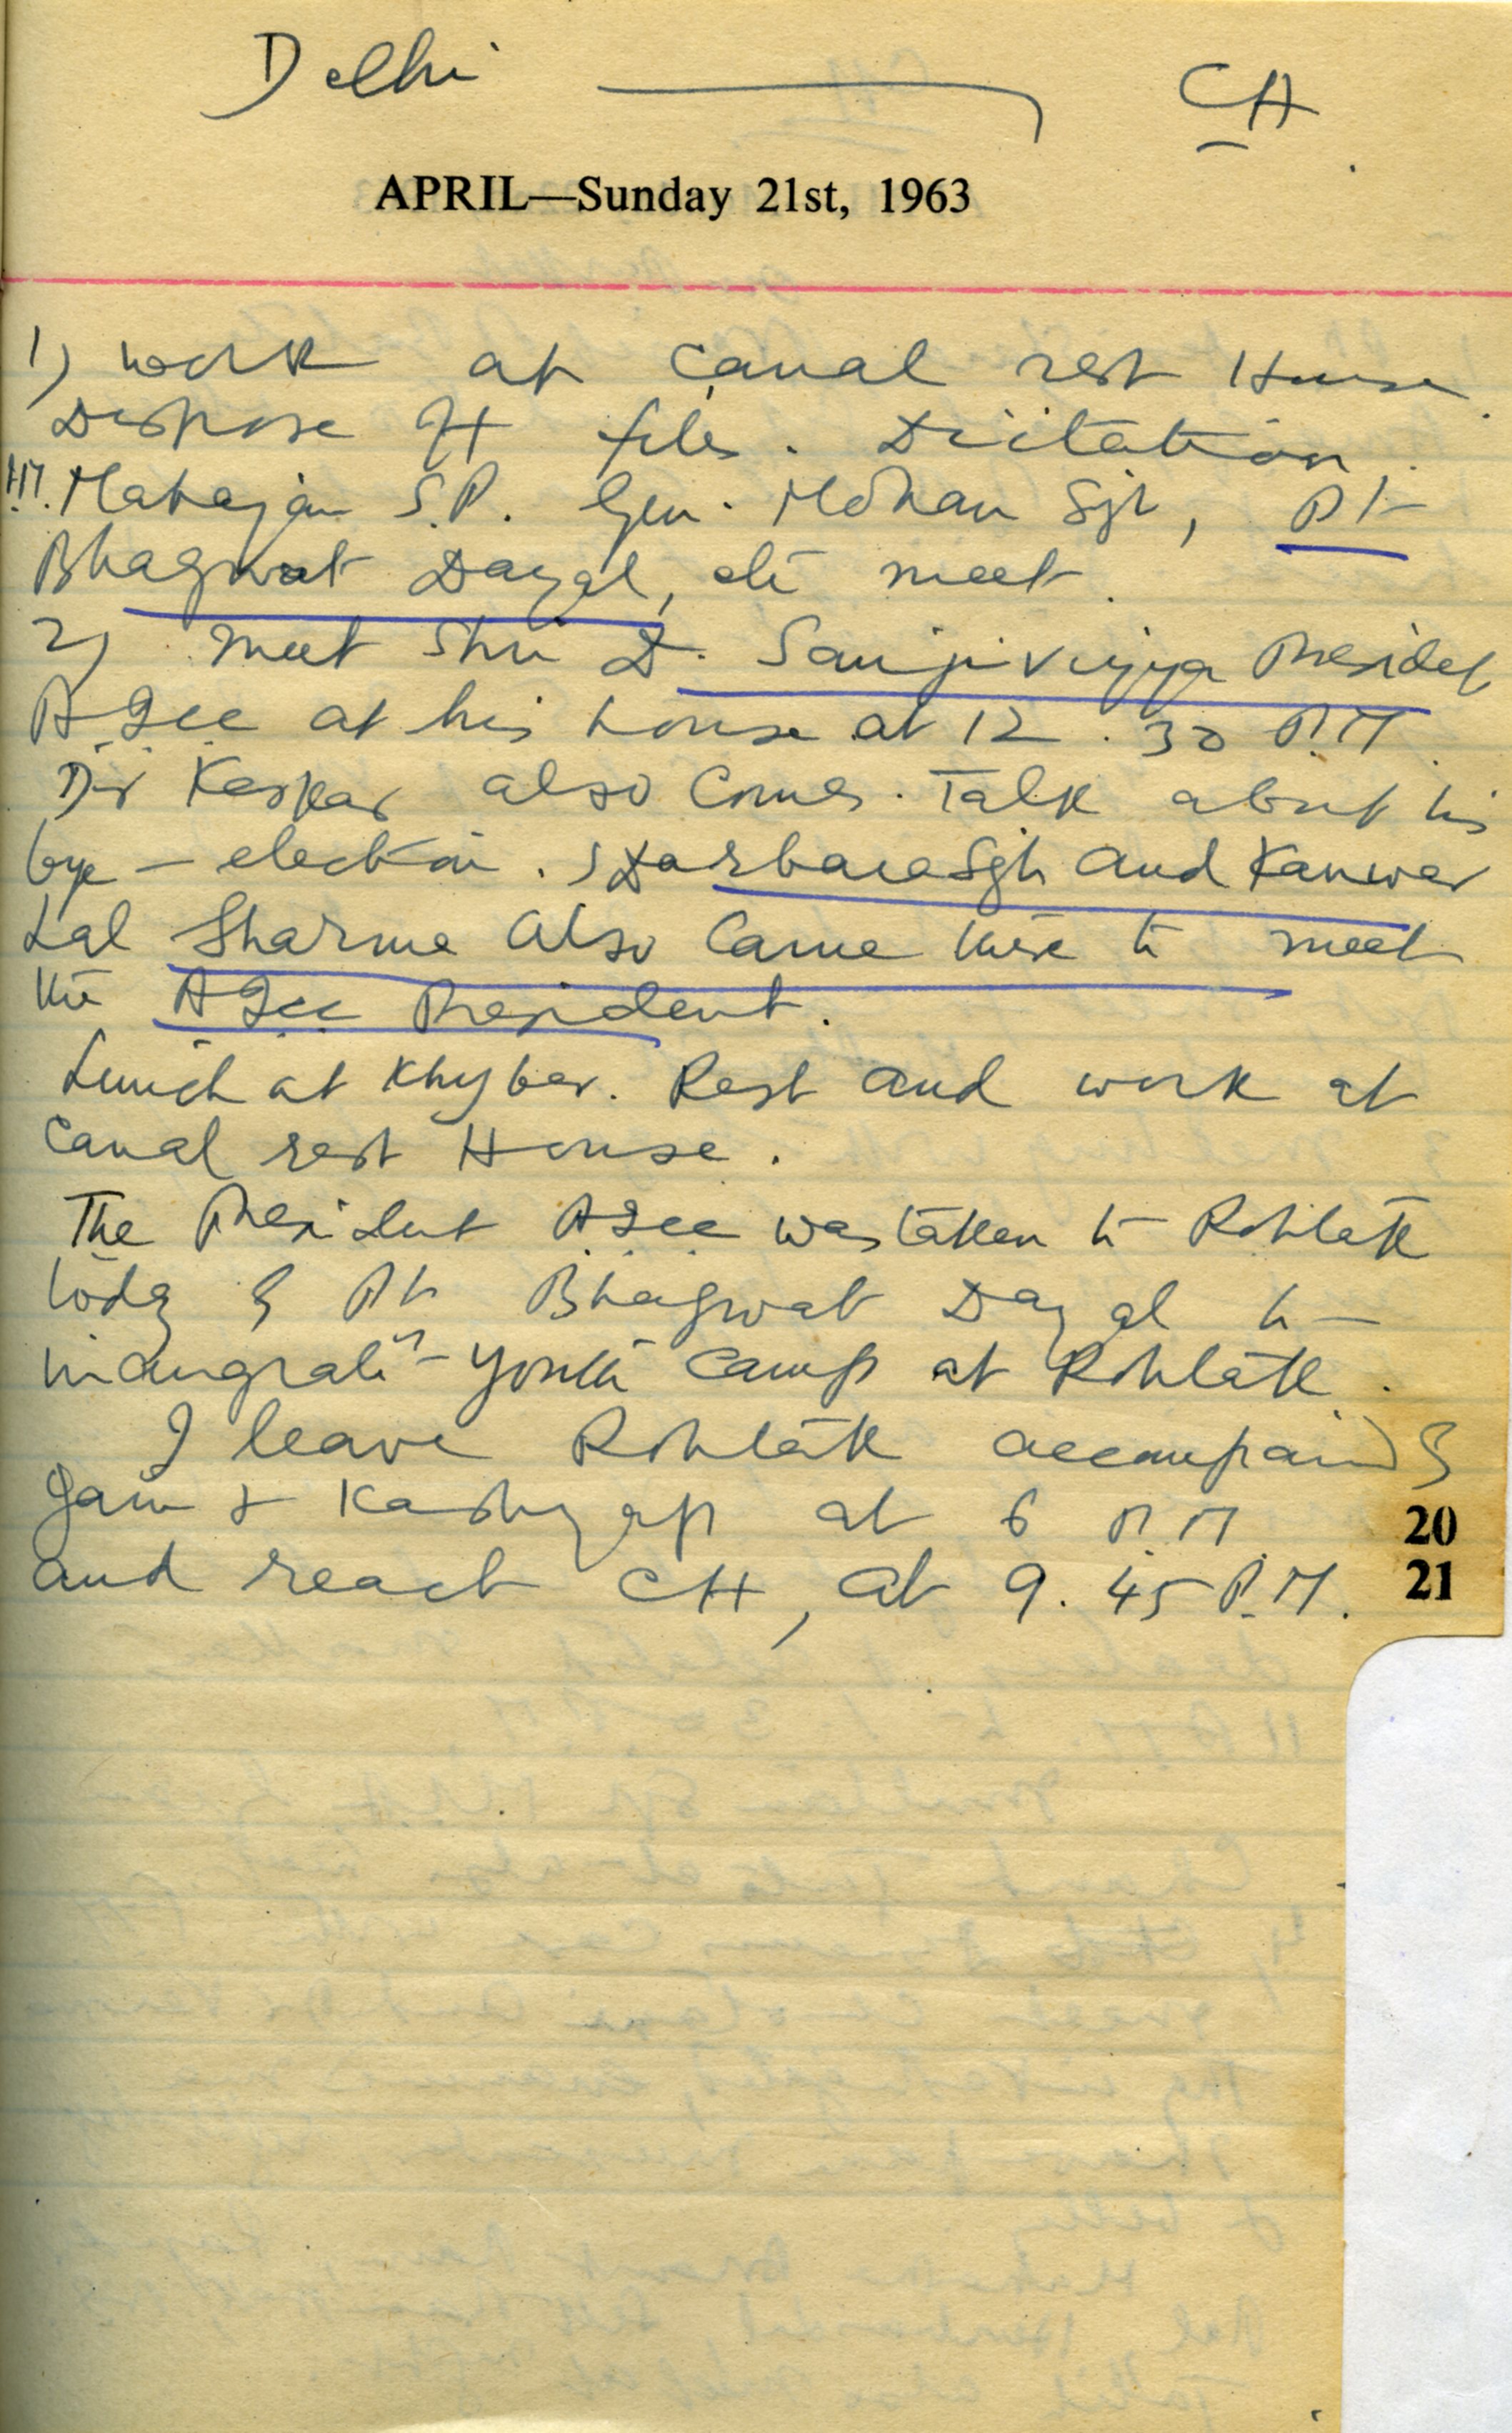 Delhi — CH
APRIL—Sunday 21st, 1963
1) work at Canal rest House.
Dispose of files. Dictation.
Mahajan S.P. Gen. Mohan Sgh, Pt
Bhagwat Dayal, etc meet.
2) meet Shri D. Sanjivayya President
AICC at his house at 12.30 P.M.
Dr Keskar also comes. Talk about his
bye-election. Darbara Sgh and Kanwar
Lal Sharma also came there to meet
the AICC President.
Lunch at Khyber. Rest and work at
Canal rest House.
The President AICC was taken to Rohtak
today by Pt Bhagwat Dayal to
inaugrate Youth Camp at Rohtak.
I leave Rohtak accompained by
Jain & Kashyap at 6 P.M. 20
and reach CH, at 9.45 P.M. 21